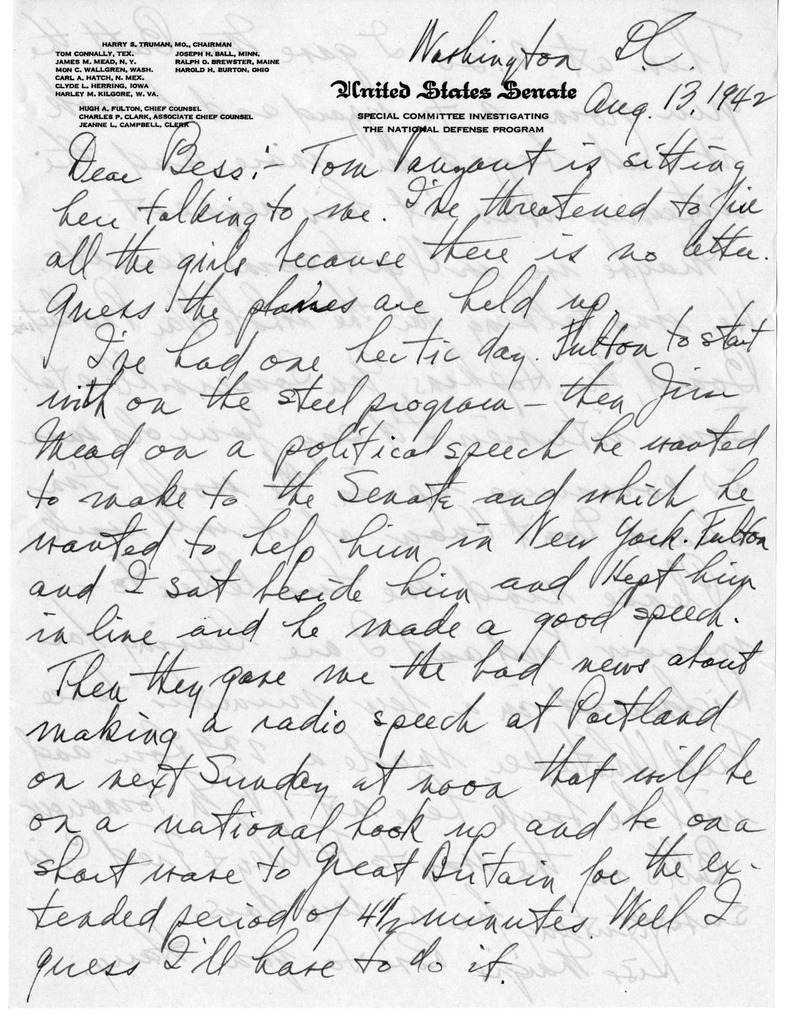 HARRY S. TRUMAN, MO., CHAIRMAN
TOM CONNALLY, TEX.
JAMES M. MEAD, N. Y.
MON C. WALLGREN, WASH.
CARL A. HATCH, N. MEX.
CLYDE L. HERRING, IOWA
HARLEY M. KILGORE, W. VA.
JOSEPH H. BALL, MINN.
RALPH O. BREWSTER, MAINE
HAROLD H. BURTON, OHIO
HUGH A. FULTON, CHIEF COUNSEL
CHARLES P. CLARK, ASSOCIATE CHIEF COUNSEL
JEANNE L. CAMPBELL, CLERK
Washington D.C.
United States Senate
Aug. 13, 1942
SPECIAL COMMITTEE INVESTIGATING
THE NATIONAL DEFENSE PROGRAM
Dear Bess:- Tom is sitting
here talking to me. I've threatened to fire
all the girls because there is no letter.
Guess the planes are held up.
I've had one hectic day. Fulton to start
with on the steel program - then Jim
Mead on a political speech he wanted
to make to the Senate and which he
wanted to help him in New York. Fulton
and I sat beside him and kept him
in line and he made a good speech.
Then they gave me the bad news about
making a radio speech at Portland
on next Sunday at noon that will be
on a national hook up and be on a
short wave to Great Britain for the ex-
tended period of 4 1/2 minutes. Well I
guess I'll have to do it.